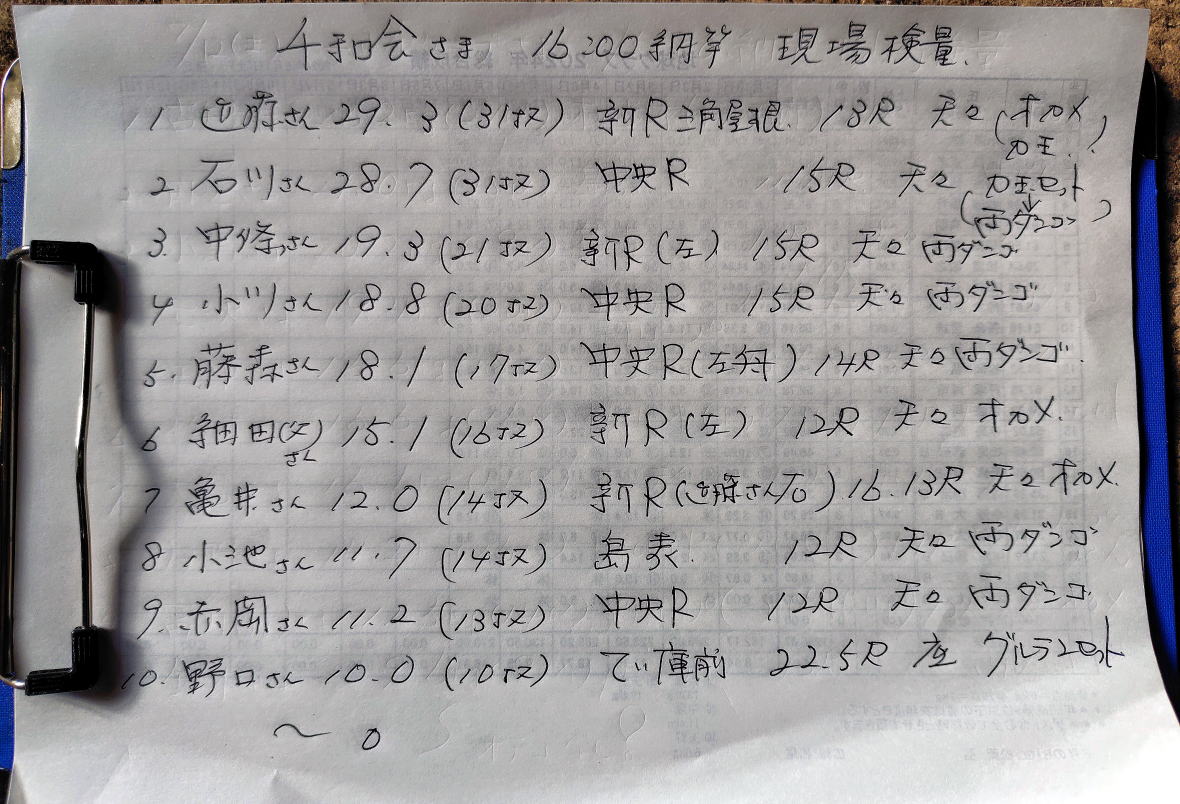 千和会さま 16:00納竿 現場検量.
1. 近藤さん 29.3 (31枚) 新R三角屋根. 13R 天々 (オカメ
カモ.)
2 石川さん 28.7 (31枚) 中央R 15R 天々 (カモセット
↓
両ダンゴ)
3. 中條さん 19.3 (21枚) 新R(左) 15R 天々 両ダンゴ
4 小川さん 18.8 (20枚) 中央R 15R 天々 両ダンゴ
5. 藤森さん 18.1 (17枚) 中央R(左舟) 14R 天々 両ダンゴ.
6 細田(父)さん 15.1 (16枚) 新R(左) 12R 天々 オカメ.
7 亀井さん 12.0 (14枚) 新R(近藤さん右) 16.13R 天々 オカメ.
8 小池さん 11.7 (14枚) 島表. 12R 天々 両ダンゴ
9. 赤岡さん 11.2 (13枚) 中央R 12R 天々 両ダンゴ
10. 野口さん 10.0 (10枚) てい庫前 22.5R 底 グルテンセット
〜 0